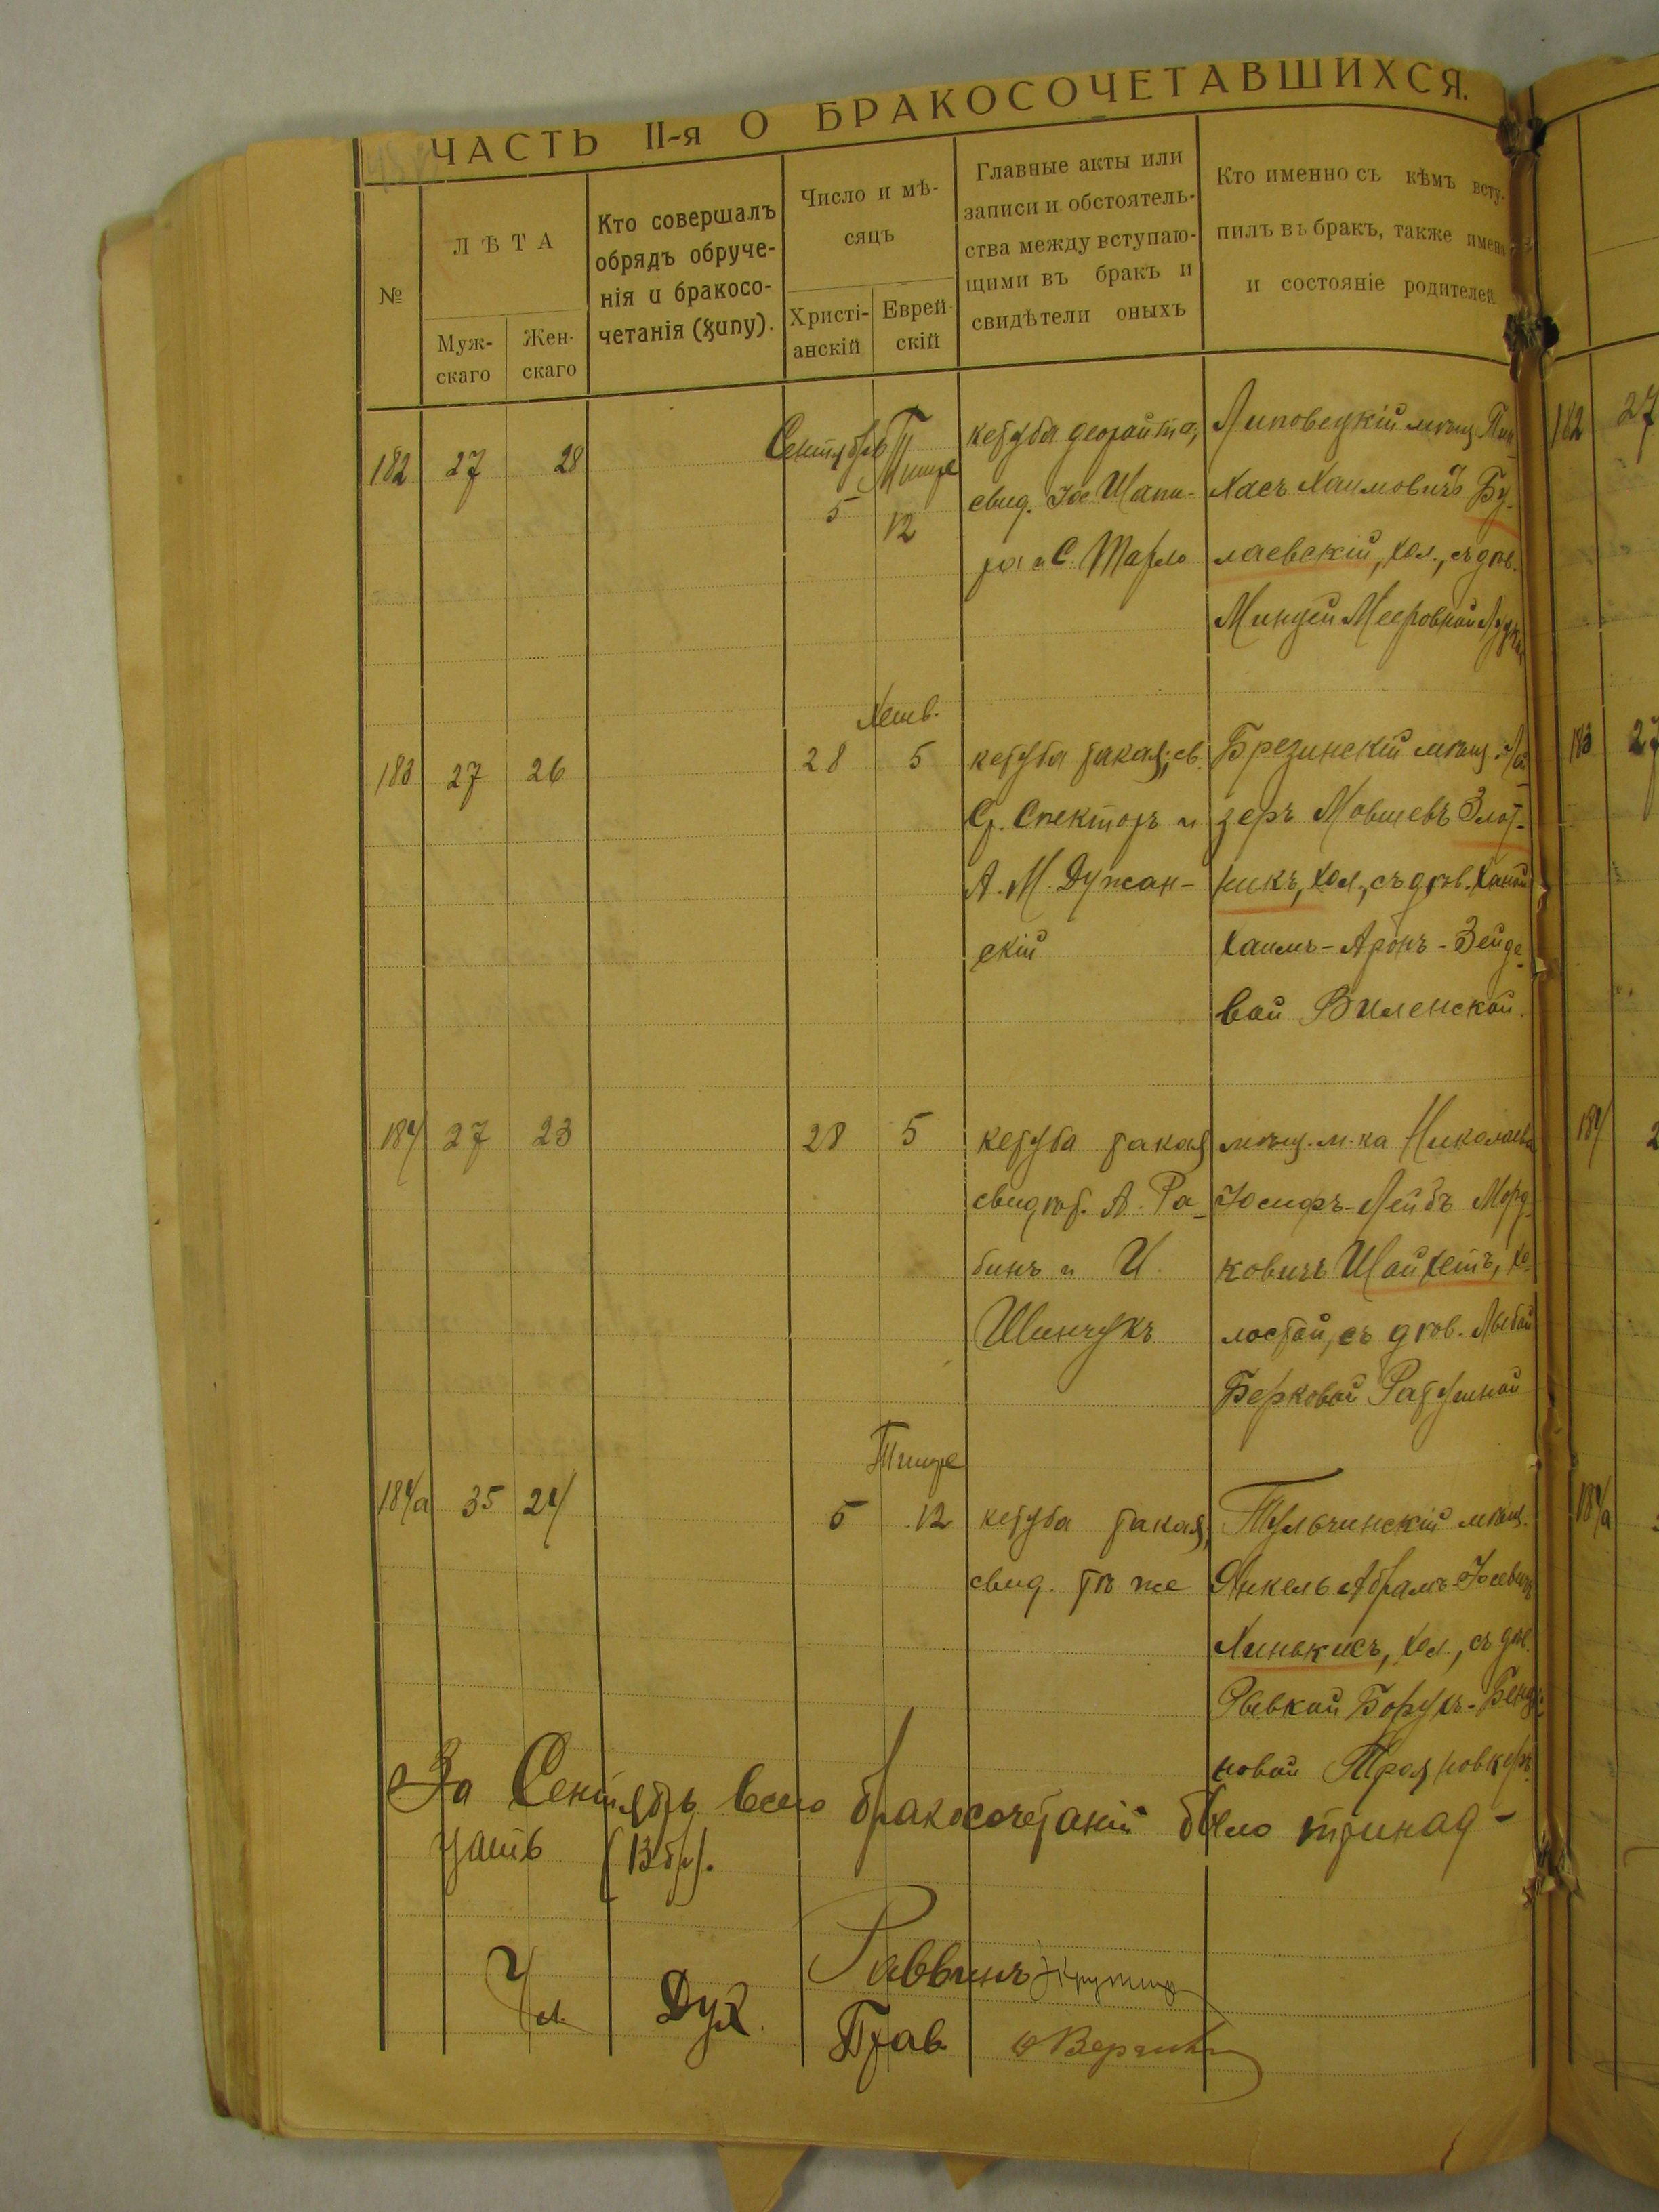 ЧАСТЬ II-я О БРАКОСОЧЕТАВШИХСЯ.
№
ЛѢТА
Муж-
скаго
Жен-
скаго
Кто совершалъ
обрядъ обруче-
нія и бракосо-
четанія (хипу).
Число и мѣ-
сяцъ
Христі-
анскій
Еврей-
скій
Главные акты или
записи и обстоятель-
ства между вступаю-
щими въ бракъ и
свидѣтели оныхъ
Кто именно съ кѣмъ всту-
пилъ въ бракъ, также имена
и состояніе родителей
182 27 28
Сентябрь
5
Тишре
12
кетуба деорайта;
свид. Іос Шапи-
ра и С. Тарло
Липовецкій мѣщ. Пин-
хасъ Хаимовичъ Бу-
лаевскій, хол., съ дѣв.
Минцей Мееровной
183 27 26
28
Хешв.
5
кетуба такая; св.
Ср. Спекторъ и
А. М. Дужан-
скій
Брезинскій мѣщ. Ла-
зеръ Мовшевъ Злот-
никъ, хол., съ дѣв. Ханой
Хаимъ-Аронъ-Зейде-
вой Виленской.
184 27 23
28 5
кетуба такая
свидѣт. А. Ра-
бинъ и И.
Шинчукъ
мѣщ. м-ка Николаева
Іосифъ-Лейбъ Морд-
ковичъ Шайхетъ, хо-
лостой, съ дѣв. Лыбой
Берковой Ратушной
184а 35 24
5
Тишре
12
кетуба такая,
свид. тѣ же
Тульчинскій мѣщ.
Янкель Абрамъ-Іосевичъ
Хинькисъ, хол., съ дѣв.
Рывкой Борухъ-
новой Трояновкеръ
За Сентябрь всего бракосочетаній было тринад-
цать (13 бр).
Раввинъ
Чл. Дух. Прав.